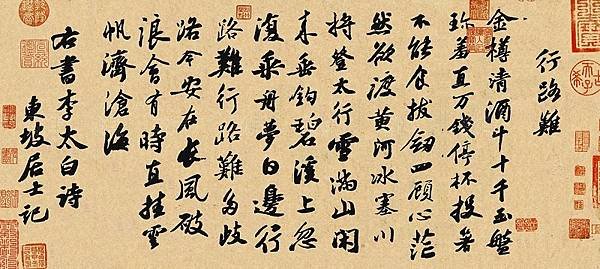 行路難
金樽清酒斗十千玉盤
珎羞直万錢停杯投箸
不能食拔劍四顧心茫
然欲渡黃河冰塞川
將登太行雪滿山閑
來垂鈎碧溪上忽
復乘舟夢日邊行
路難行路難多歧
路今安在長風破
浪會有時直挂雲
帆濟滄海
右書李太白詩
東坡居士記